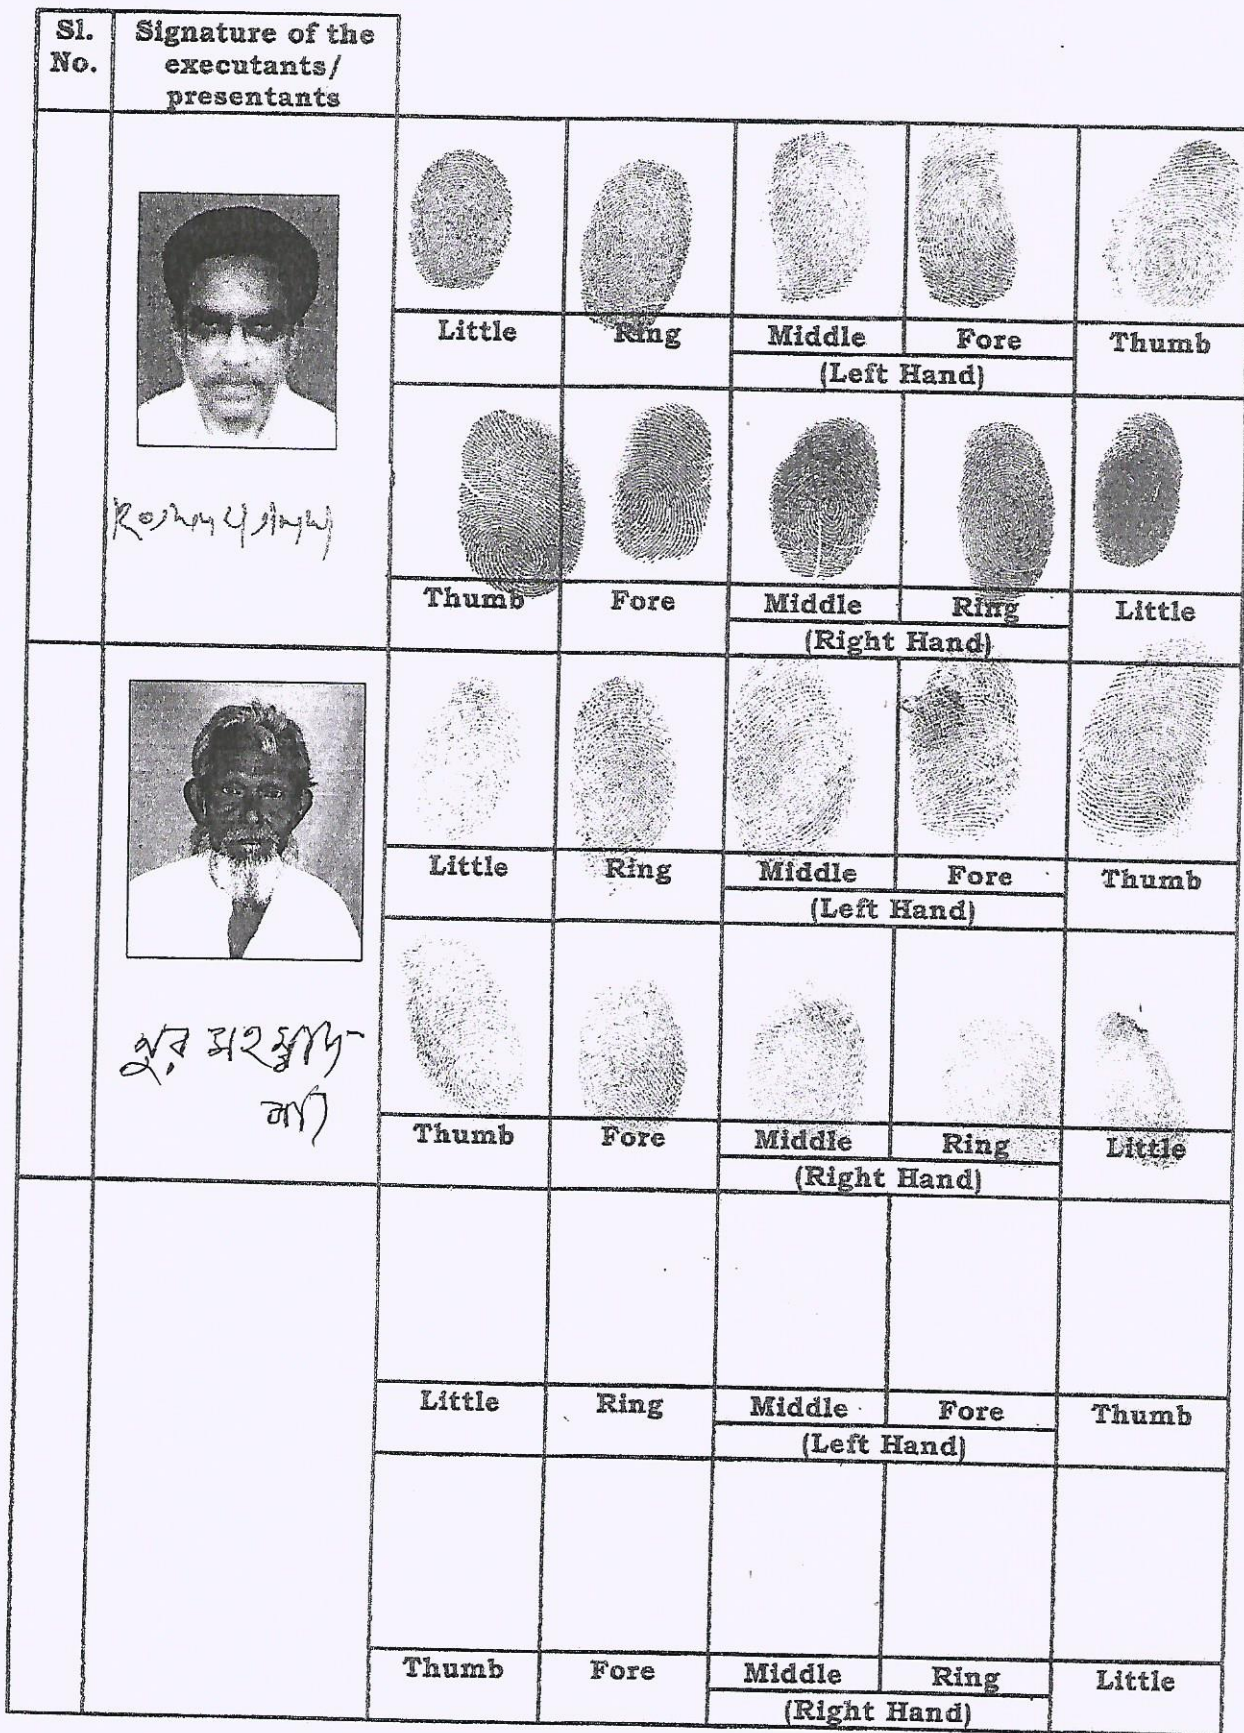 Sl.
No.
Signature of the
executants/
presentants
Little Ring Middle Fore Thumb
(Left Hand)
Thumb Fore Middle Ring Little
(Right Hand)
Little Ring Middle Fore Thumb
(Left Hand)
নুর মহম্মদ
Thumb Fore Middle Ring Little
(Right Hand)
Little Ring Middle Fore Thumb
(Left Hand)
Thumb Fore Middle Ring Little
(Right Hand)